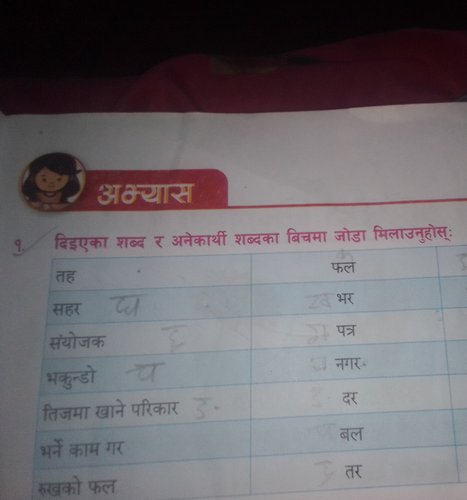 अभ्यास
१ दिइएका शब्द र अनेकार्थी शब्दका बिचमा जोडा मिलाउनुहोस्:
तह फल
सहर घ भर
संयोजक पत्र
भकुन्डो च नगर
तिजमा खाने परिकार ङ दर
भर्ने काम गर बल
रूखको फल तर